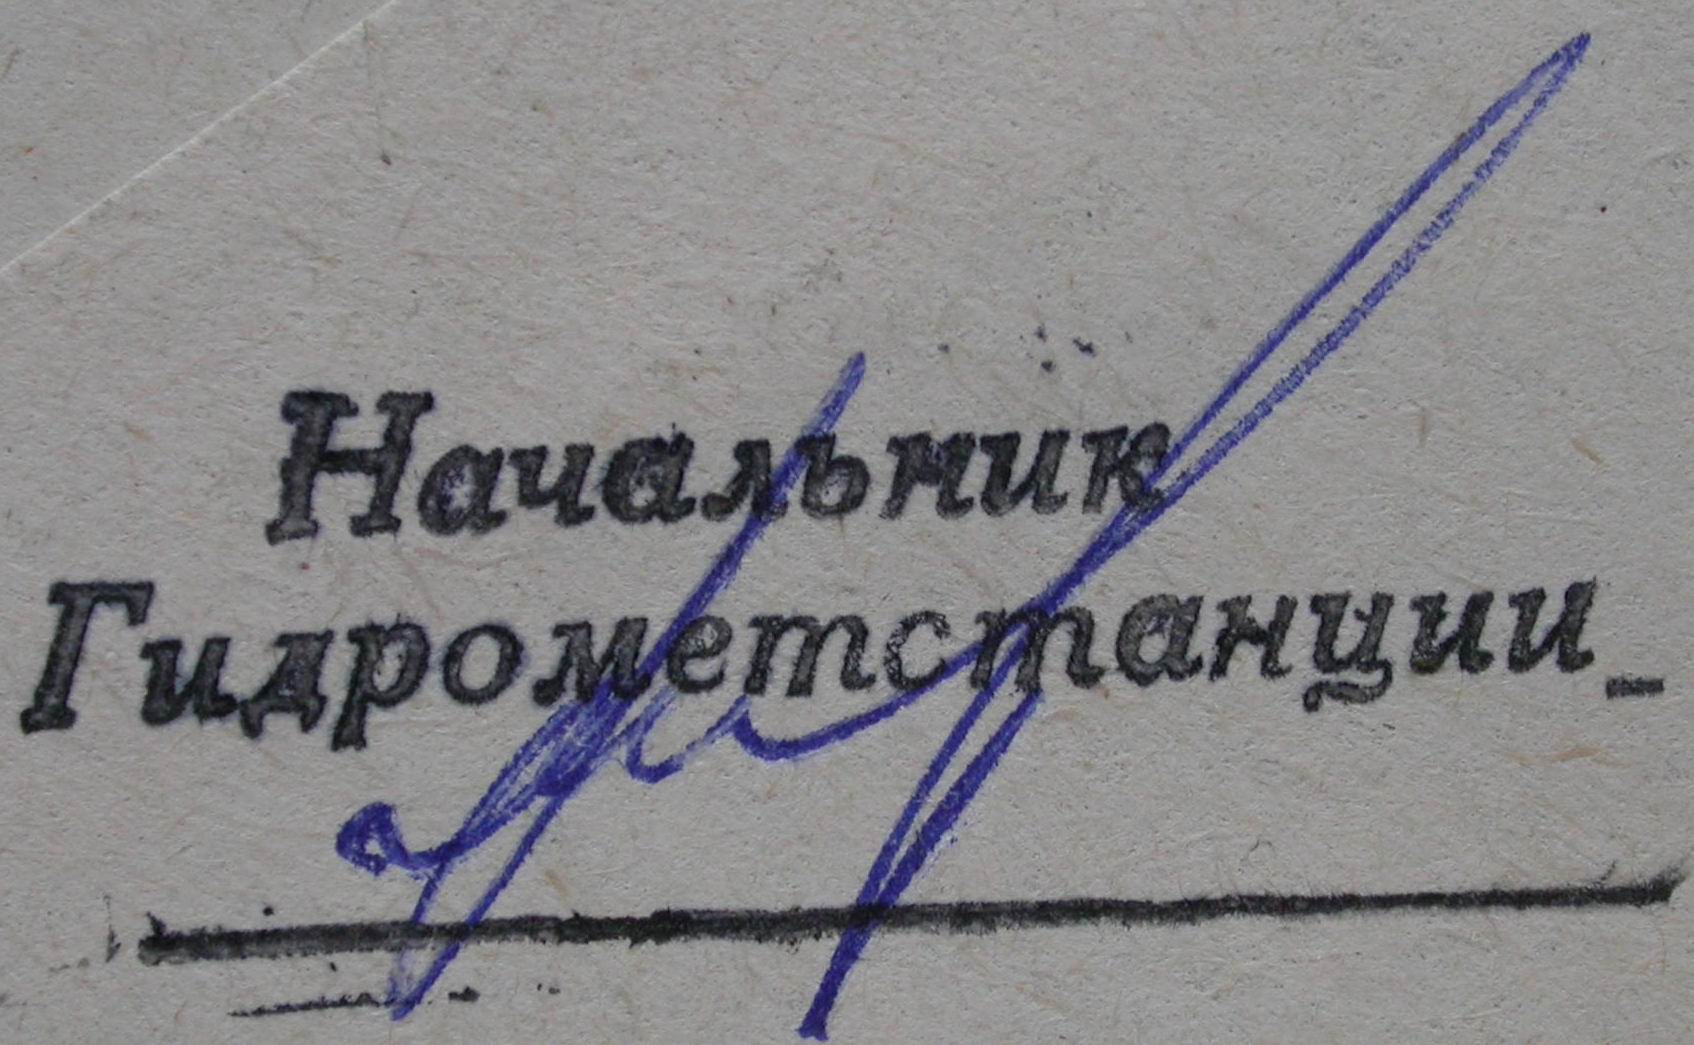 Начальник
Гидрометстанции_